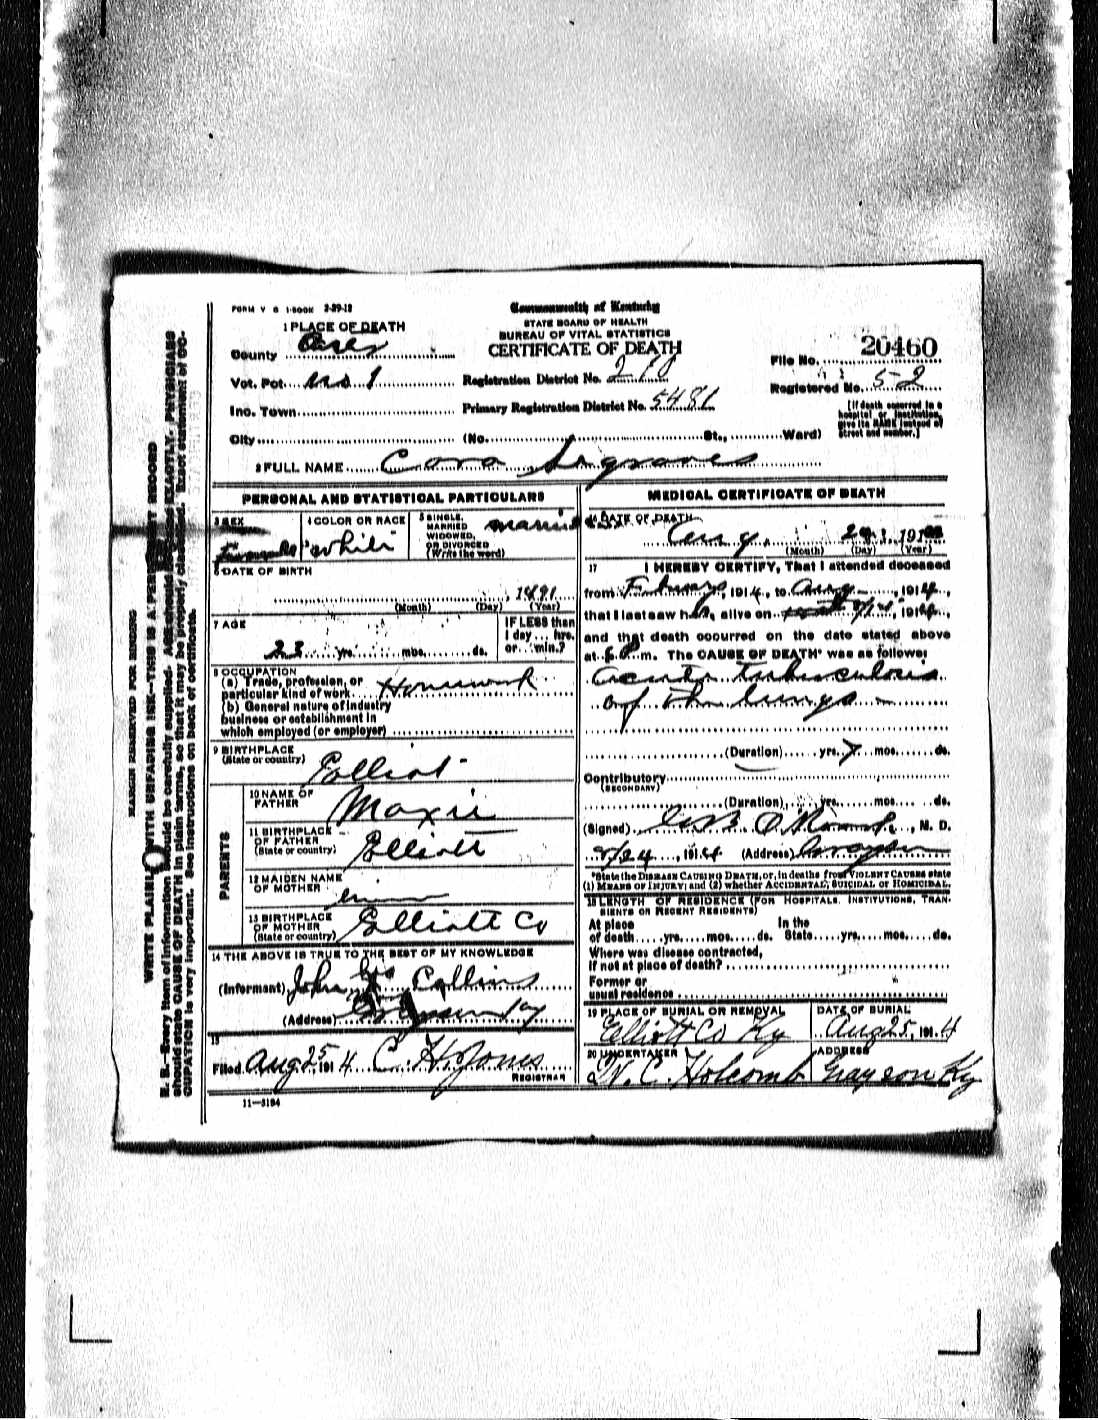 FORM V S 1-BOOK 2-29-12
Commonwealth of Kentucky
STATE BOARD OF HEALTH
BUREAU OF VITAL STATISTICS
CERTIFICATE OF DEATH
1 PLACE OF DEATH
County
Vot. Pct. No 1
Inc. Town
City (No. St., Ward)
Registration District No. 210
Primary Registration District No. 5481
File No. 20460
Registered No. 52
[If death occurred in a
hospital or institution,
give its NAME instead of
street and number.]
2 FULL NAME Cora Segraves
PERSONAL AND STATISTICAL PARTICULARS
3 SEX
Female
4 COLOR OR RACE
White
5 SINGLE,
MARRIED
WIDOWED,
OR DIVORCED
(Write the word)
married
6 DATE OF BIRTH
, 1891
(Month) (Day) (Year)
7 AGE
23 yrs. mos. ds.
IF LESS than
1 day ... hrs.
or ... min.?
8 OCCUPATION
(a) Trade, profession, or
particular kind of work Housework
(b) General nature of industry
business or establishment in
which employed (or employer)
9 BIRTHPLACE
(State or country) Elliott
PARENTS
10 NAME OF
FATHER
11 BIRTHPLACE
OF FATHER
(State or country) Elliott
12 MAIDEN NAME
OF MOTHER
13 BIRTHPLACE
OF MOTHER
(State or country) Elliott Co
14 THE ABOVE IS TRUE TO THE BEST OF MY KNOWLEDGE
(Informant) John Collins
(Address) Grayson Ky
15
Filed Aug 25, 1914 C. H. Jones
REGISTRAR
11-3184
MEDICAL CERTIFICATE OF DEATH
16 DATE OF DEATH
Aug. 191
(Month) (Day) (Year)
17 I HEREBY CERTIFY, That I attended deceased
from , 1914, to Aug , 1914,
that I last saw h alive on , 1914,
and that death occurred on the date stated above
at 6 P. m. The CAUSE OF DEATH* was as follows:
Acute tuberculosis
of the lungs
(Duration) yrs. 7 mos. ds.
Contributory
(SECONDARY)
(Duration) yrs. mos. ds.
(Signed) , M. D.
8/24, 1914 (Address) Grayson
*State the DISEASE CAUSING DEATH, or, in deaths from VIOLENT CAUSES state
(1) MEANS OF INJURY; and (2) whether ACCIDENTAL, SUICIDAL or HOMICIDAL.
18 LENGTH OF RESIDENCE (FOR HOSPITALS, INSTITUTIONS, TRAN-
SIENTS OR RECENT RESIDENTS)
At place In the
of death yrs. mos. ds. State yrs. mos. ds.
Where was disease contracted,
if not at place of death?
Former or
usual residence
19 PLACE OF BURIAL OR REMOVAL
Elliott Co Ky
DATE OF BURIAL
Aug 25, 1914
20 UNDERTAKER
W. C. Holcomb
ADDRESS
Grayson Ky
MARGIN RESERVED FOR BINDING
WRITE PLAINLY WITH UNFADING INK—THIS IS A PERMANENT RECORD
N. B.—Every item of information should be carefully supplied. AGE should be stated EXACTLY. PHYSICIANS
should state CAUSE OF DEATH in plain terms, so that it may be properly classified. Exact statement of OC-
CUPATION is very important. See instructions on back of certificate.